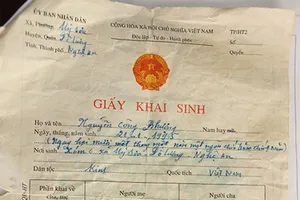 ỦY BAN NHÂN DÂN
Xã, Phường Mỹ Sơn
Huyện, Quận Đô Lương
Tỉnh, Thành phố Nghệ An
CỘNG HÒA XÃ HỘI CHỦ NGHĨA VIỆT NAM
Độc lập - Tự do - Hạnh phúc
TP/HT2
Số
Quyển số
GIẤY KHAI SINH
Họ và tên Nguyễn Công Phượng Nam hay
Ngày, tháng, năm sinh 21-1-1995
(Ngày hai mươi mốt tháng một năm một ngàn chín trăm chín lăm)
Nơi sinh Xóm 6 xã Mỹ Sơn Đô Lương Nghệ An
Dân tộc Kinh Quốc tịch Việt Nam
Phần khai về Người mẹ Người cha